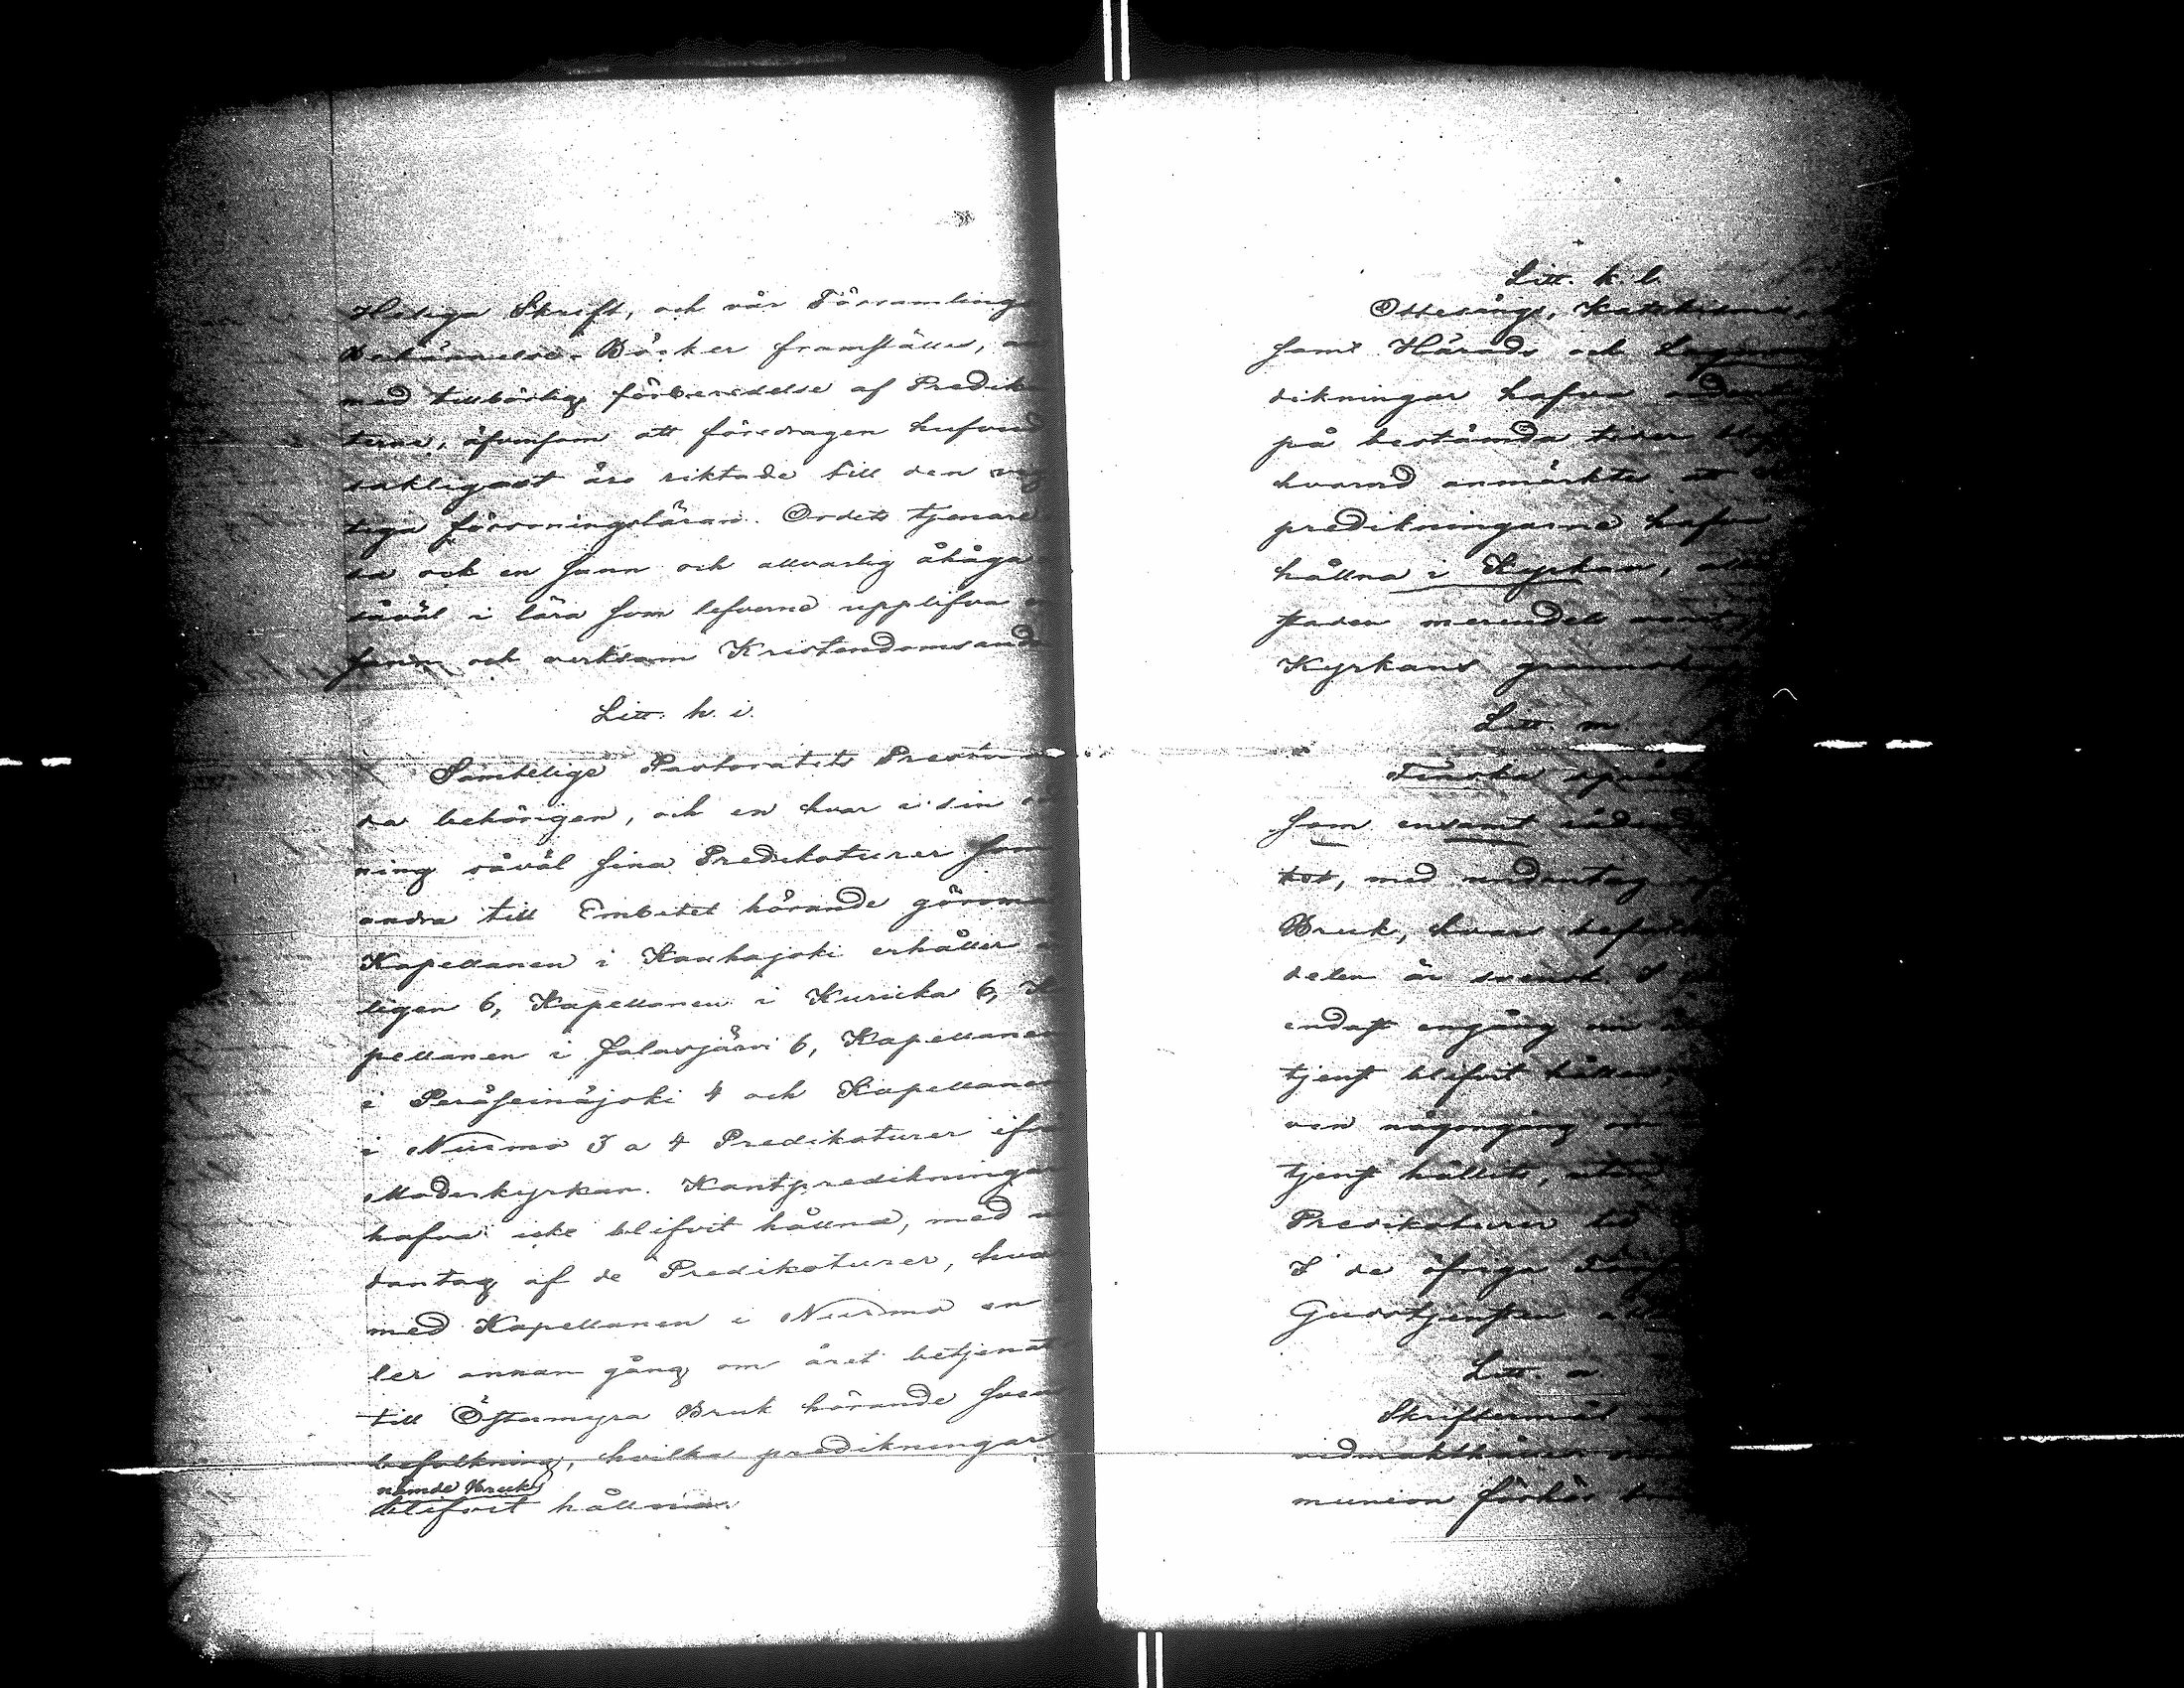 Heliga Skrift, och vår Församlings
Bekännelse-Böcker framställes,
med tillbörlig förberedelse af Predikan
terne, äfvensom att föredragen hufvud
sakligast äro riktade till den vig
tiga försoningsläran. Ordets tjenare
ha ock en sann och allvarlig åhåga
såväl i lära som lefverne upplifva
sann och verksam Kristendomsande
Litt. h. i.
Samtelige Pastoratets Prester
ha behörigen, och en hvar i sin
ning såväl sina Predikoturer som
andra till Embetet hörande göromå
Kapellanen i Kauhajoki erhåller
ligen 6, Kapellanen i Kurikka 6, K
pellanen i Jalasjärvi 6, Kapellanen
i Peräseinäjoki 4 och Kapellanen
i Nurmo 3 a 4 Predikoturer ifrån
Moderkyrkan. Kantpredikningar
hafva icke blifvit hållna, med
dantag af de Predikoturer, hvar
med Kapellanen i Nurmo en
ler annan gång om året betjenat
till Östermyra Bruk hörande sven
befolkning, hvilka predikningar
nämde Bruk
blifvit hållna.
Litt. k. l.
Ottesångs, Katekismi,
samt Härads och Lagmans
dikningar hafva
på bestämda tider
hvarvid anmärktes att
predikningarne hafva
hållna i Kyrkan,
staden merendels
Kyrkans grannskap
Litt. m.
Finska språk
som ensamt
kot, med undantag af
Bruk, hvars befolk
delen är svensk. I
endast engång om år
tjenst blifvit hållen,
ven någongång om
tjenst hållits, utan
Predikoturer
I de öfriga För
Gudstjensten
Litt.
Skriftermål
vidmakthållas
munion förhör